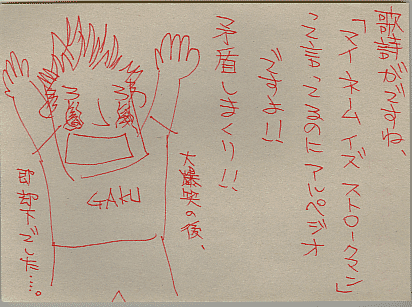 歌詩がですね、
「マイネームイズ ストロークマン」
って言ってるのにアルペジオ
ですよ!!
矛盾しまくり!!
大爆笑の後、
即却下でした…。
GAKU